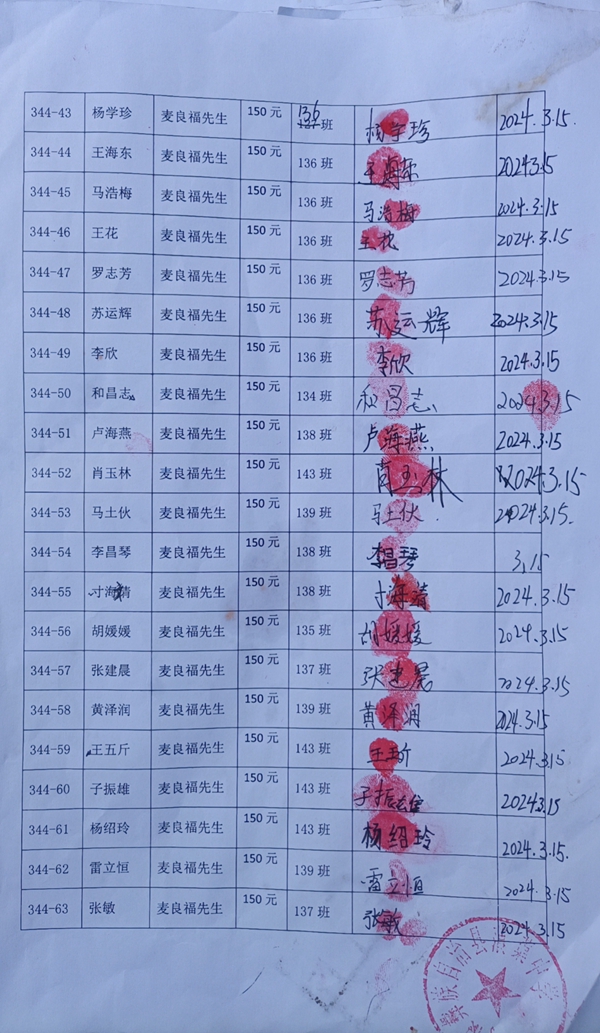 344-43 杨学珍 麦良福先生 150元 136 137班 杨学珍 2024.3.15.
344-44 王海东 麦良福先生 150元 136班 王海东 2024.3.15
344-45 马浩梅 麦良福先生 150元 136班 马浩梅 2024.3.15
344-46 王花 麦良福先生 150元 136班 王花 2024.3.15
344-47 罗志芳 麦良福先生 150元 136班 罗志芳 2024.3.15
344-48 苏运辉 麦良福先生 150元 136班 苏运辉 2024.3.15
344-49 李欣 麦良福先生 150元 136班 李欣 2024.3.15
344-50 和昌志 麦良福先生 150元 134班 和昌志 2024.3.15
344-51 卢海燕 麦良福先生 150元 138班 卢海燕 2024.3.15
344-52 肖玉林 麦良福先生 150元 143班 肖玉林 2024.3.15
344-53 马土伙 麦良福先生 150元 139班 马土伙 2024.3.15.
344-54 李昌琴 麦良福先生 150元 138班 李昌琴 3.15
344-55 寸海靖 麦良福先生 150元 138班 寸海靖 2024.3.15
344-56 胡媛媛 麦良福先生 150元 135班 胡媛媛 2024.3.15
344-57 张建晨 麦良福先生 150元 137班 张建晨 2024.3.15
344-58 黄泽润 麦良福先生 150元 139班 黄泽润 2024.3.15
344-59 王五斤 麦良福先生 150元 143班 2024.3.15
344-60 子振雄 麦良福先生 150元 143班 子振雄 2024.3.15
344-61 杨绍玲 麦良福先生 150元 143班 杨绍玲 2024.3.15.
344-62 雷立恒 麦良福先生 150元 139班 雷立恒 2024.3.15
344-63 张敏 麦良福先生 150元 137班 张敏 2024.3.15
族自治县 中学